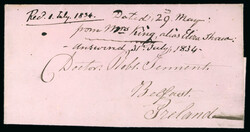 Recd. 1. July. 1834. Dated: 29 May
from Mrs King, alias Eliza
answered 3d July, 1834
Doctor: Robt. Tennent
Belfast
Ireland